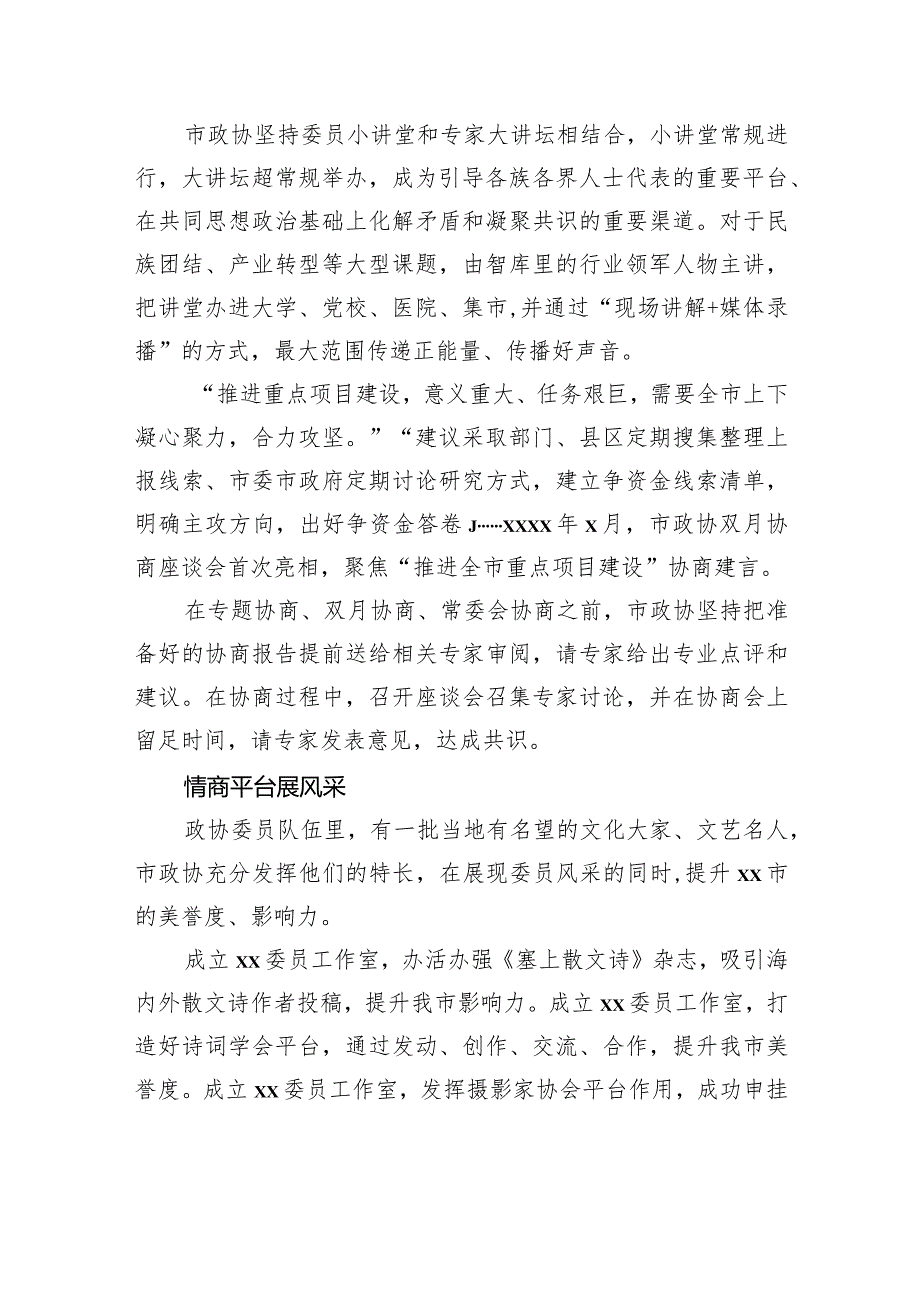 市政协坚持委员小讲堂和专家大讲坛相结合，小讲堂常规进
行，大讲坛超常规举办，成为引导各族各界人士代表的重要平台、
在共同思想政治基础上化解矛盾和凝聚共识的重要渠道。对于民
族团结、产业转型等大型课题，由智库里的行业领军人物主讲，
把讲堂办进大学、党校、医院、集市,并通过“现场讲解+媒体录
播”的方式，最大范围传递正能量、传播好声音。
“推进重点项目建设，意义重大、任务艰巨，需要全市上下
凝心聚力，合力攻坚。”“建议采取部门、县区定期搜集整理上
报线索、市委市政府定期讨论研究方式，建立争资金线索清单，
明确主攻方向，出好争资金答卷J……XXXX年X月，市政协双月协
商座谈会首次亮相，聚焦“推进全市重点项目建设”协商建言。
在专题协商、双月协商、常委会协商之前，市政协坚持把准
备好的协商报告提前送给相关专家审阅，请专家给出专业点评和
建议。在协商过程中，召开座谈会召集专家讨论，并在协商会上
留足时间，请专家发表意见，达成共识。
情商平台展风采
政协委员队伍里，有一批当地有名望的文化大家、文艺名人，
市政协充分发挥他们的特长，在展现委员风采的同时,提升xx市
的美誉度、影响力。
成立xx委员工作室，办活办强《塞上散文诗》杂志，吸引海
内外散文诗作者投稿，提升我市影响力。成立xx委员工作室，打
造好诗词学会平台，通过发动、创作、交流、合作，提升我市美
誉度。成立xx委员工作室，发挥摄影家协会平台作用，成功申挂